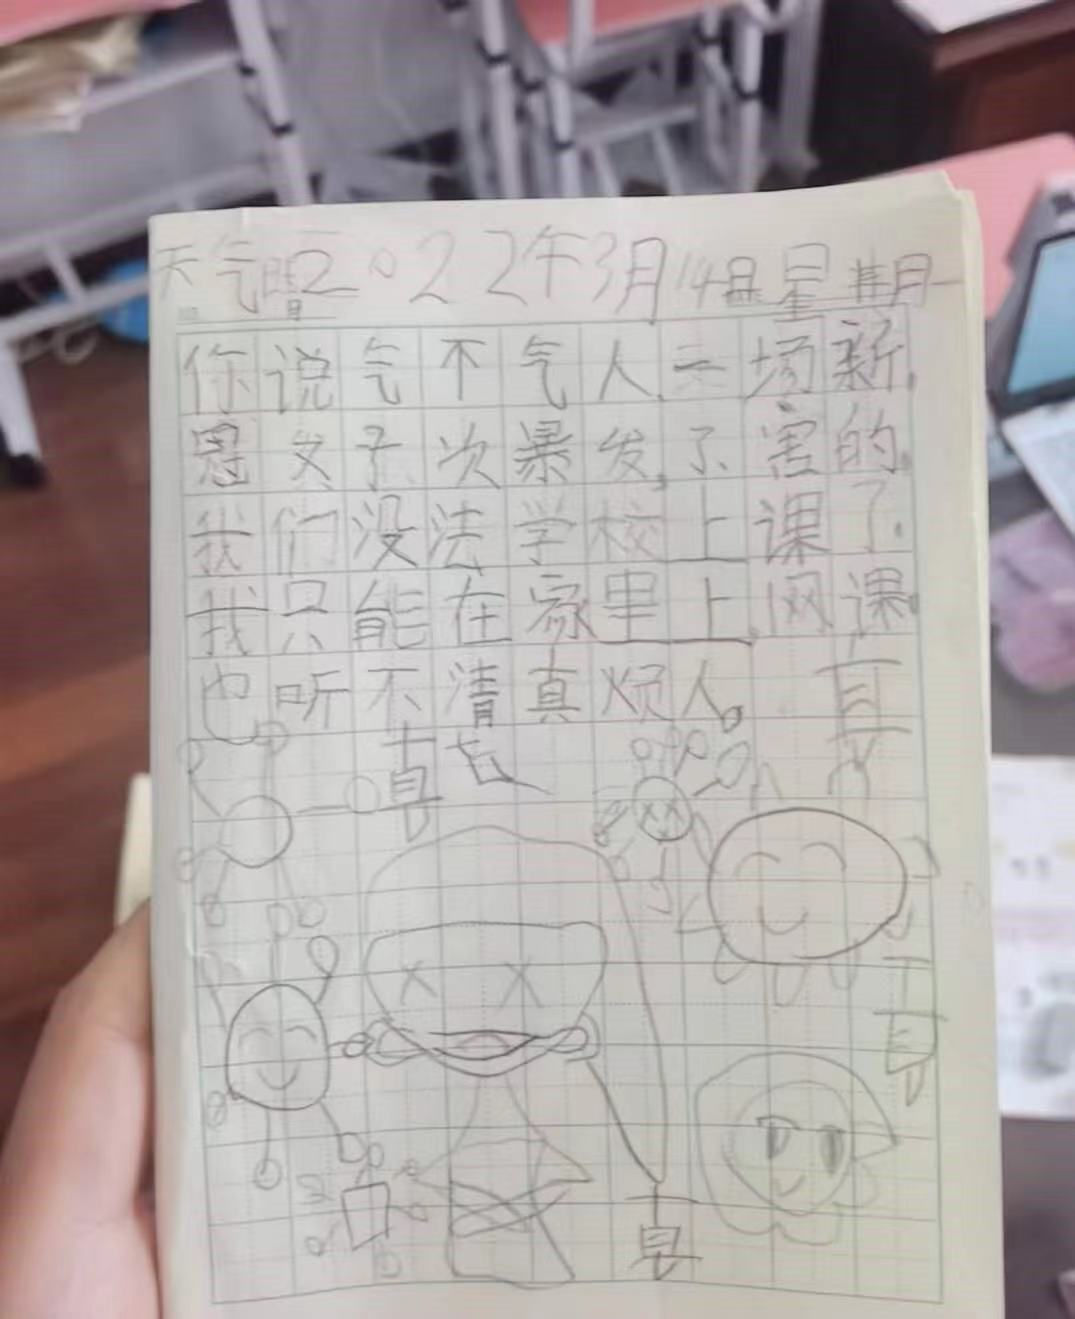 天气晴2022年3月14日星期一
你说气不气人，一场新
冠又一次暴发，了，害的，
我们没法学校上课了，
我只能在家里上网课，
也听不清真烦人。
真
真
真